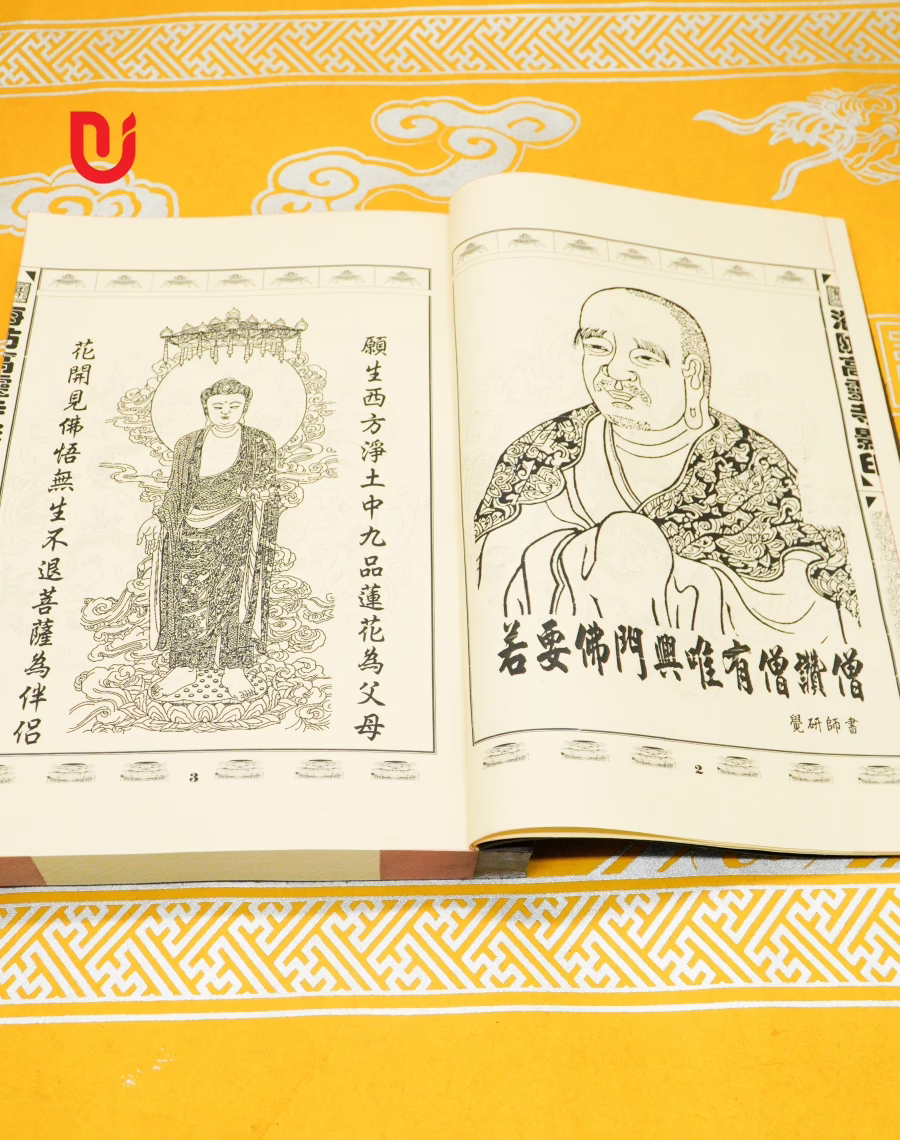 若要佛門興唯有僧讚僧
覺研師書
2
願生西方淨土中九品蓮花為父母
花開見佛悟無生不退菩薩為伴侶
3